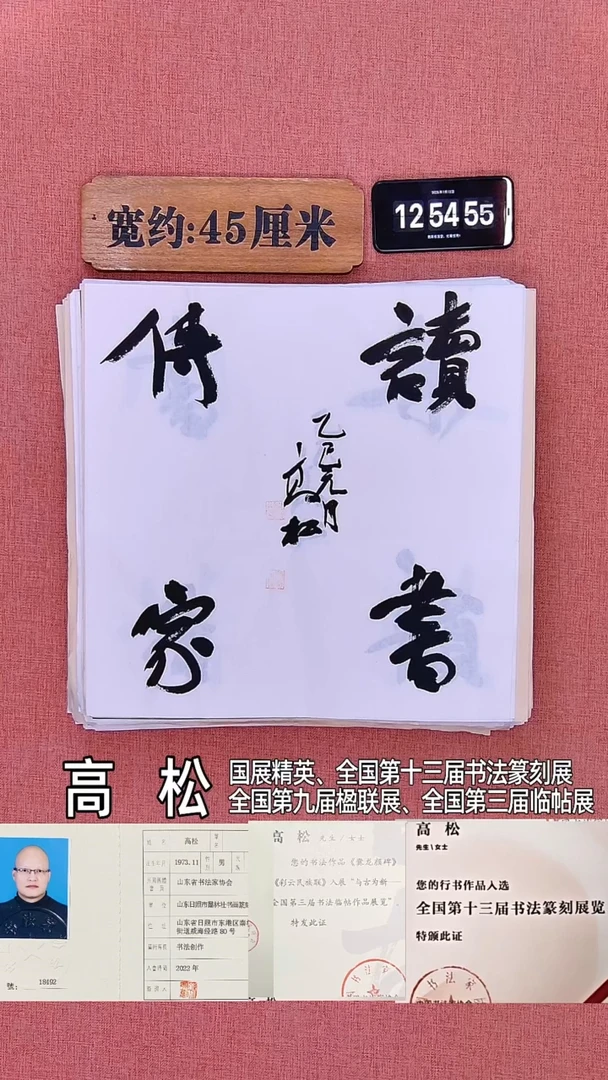 宽约:45厘米
12 54 55
讀書
傳家
乙巳元月
高松
高 松
国展精英、全国第十三届书法篆刻展
全国第九届楹联展、全国第三届临帖展
號: 18192
高松
1973.11
男
山东省书法家协会
山东省日照市东港区
街道威海路 80 号
书法创作
2022 年
高 松 先生/女士
您的书法作品
《彩云民族联》入展“与古为新
全国第三届书法临帖作品展览”，
特发此证
高 松
先生\女士
您的行书作品入选
全国第十三届书法篆刻展览
特颁此证